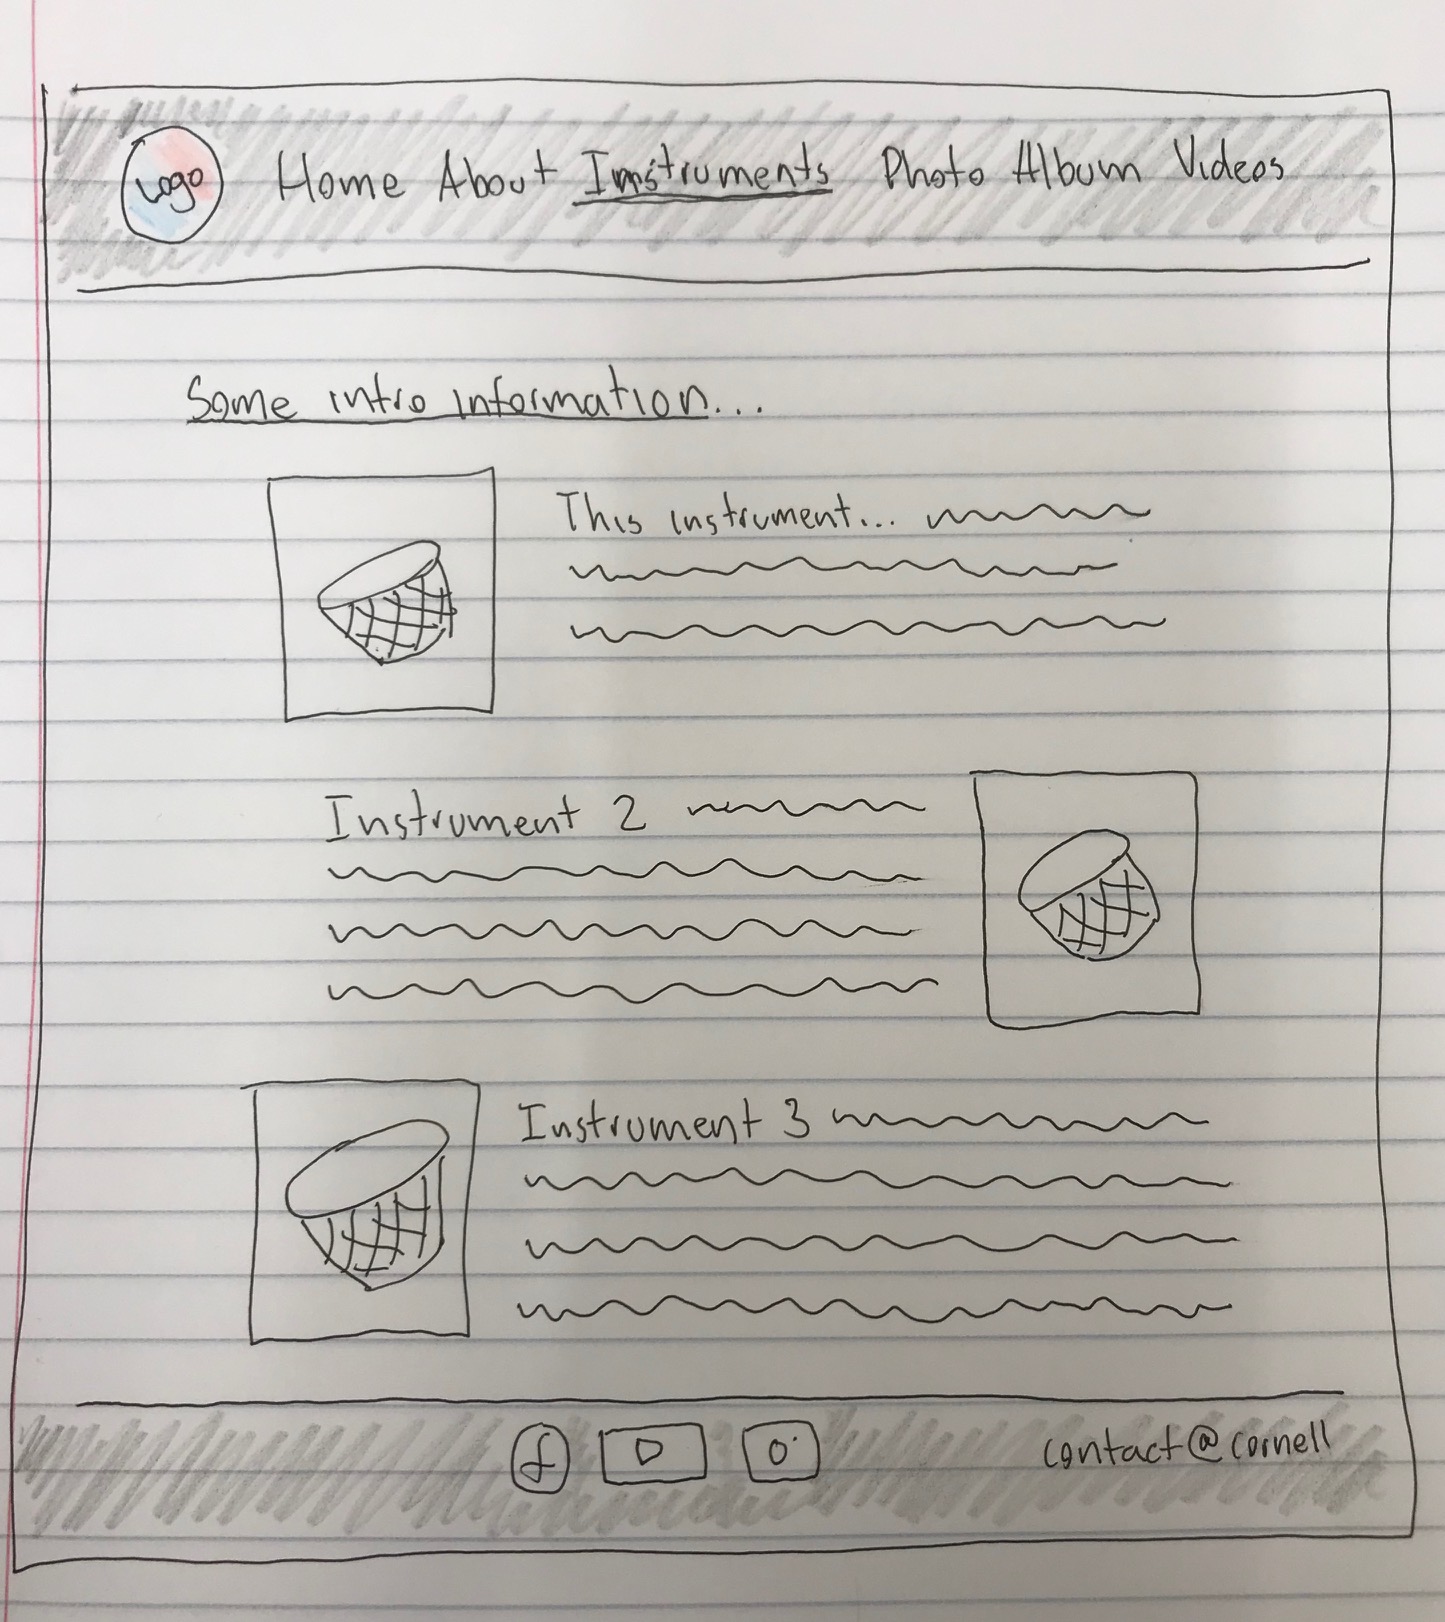 Logo Home About Instruments Photo Album Videos
Some intro information...
This instrument...
Instrument 2
Instrument 3
f contact@cornell